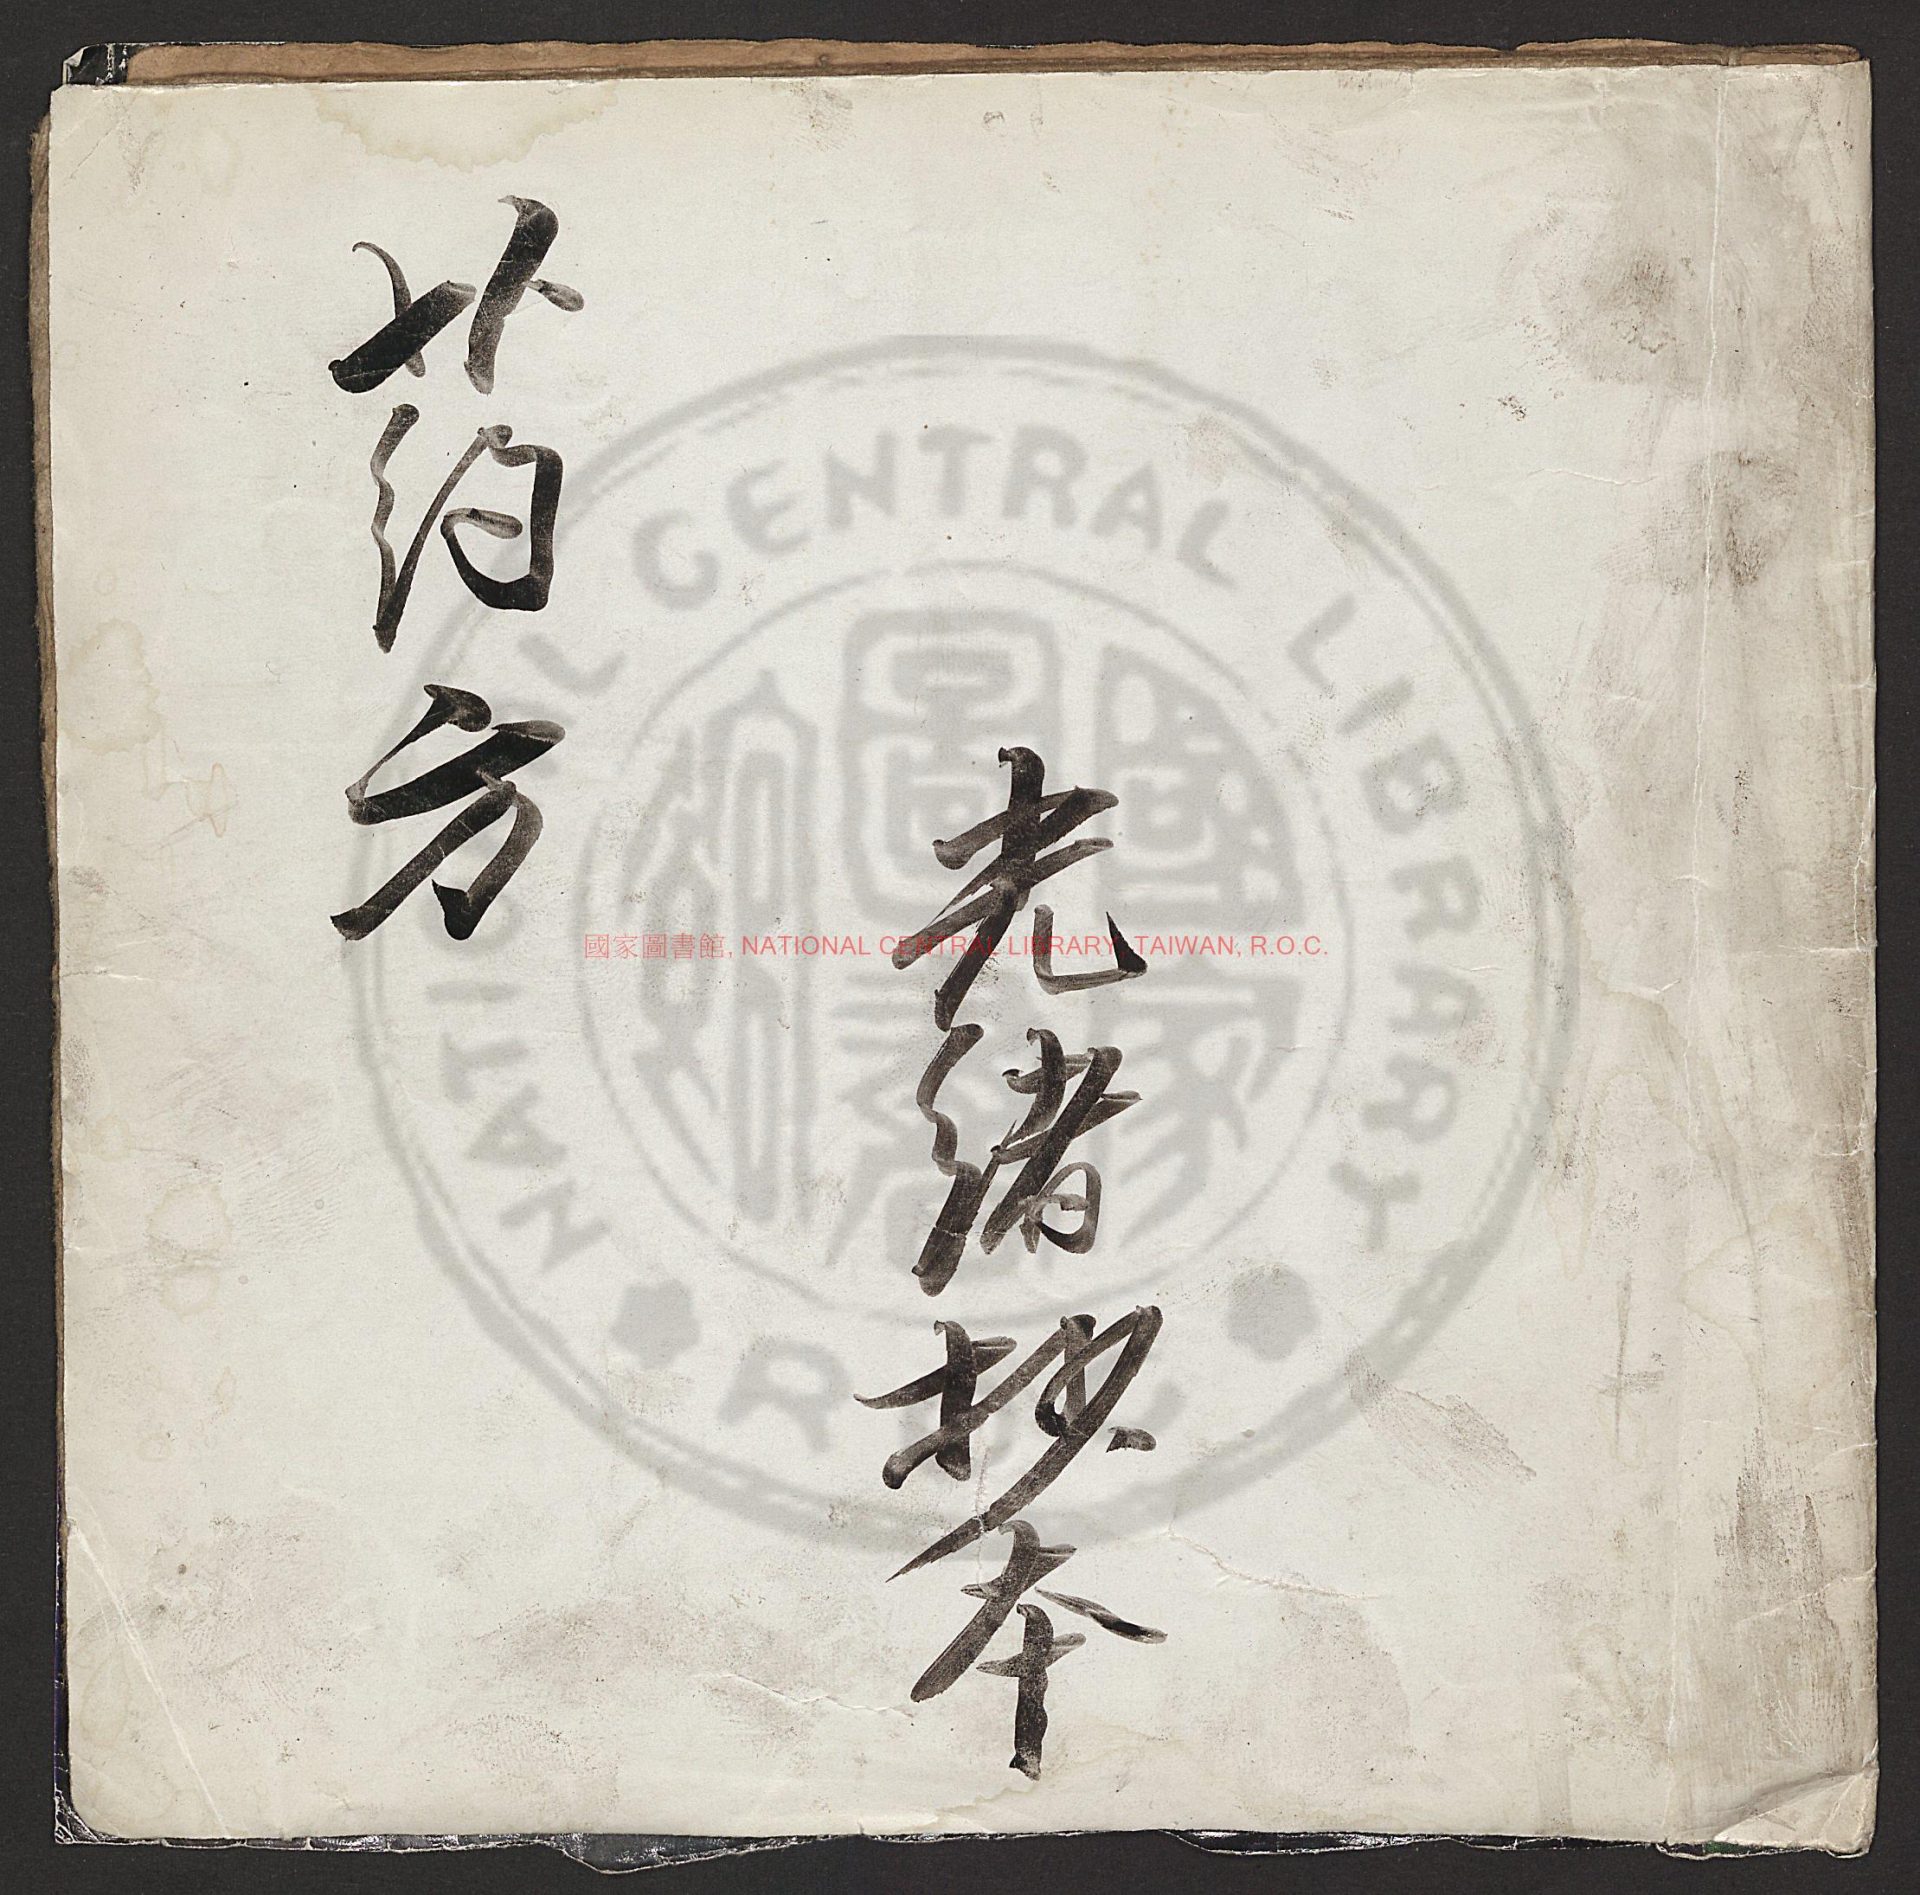 光绪抄本
药方
國家圖書館, NATIONAL CENTRAL LIBRARY, TAIWAN, R.O.C.
NATIONAL CENTRAL LIBRARY
國家圖書館